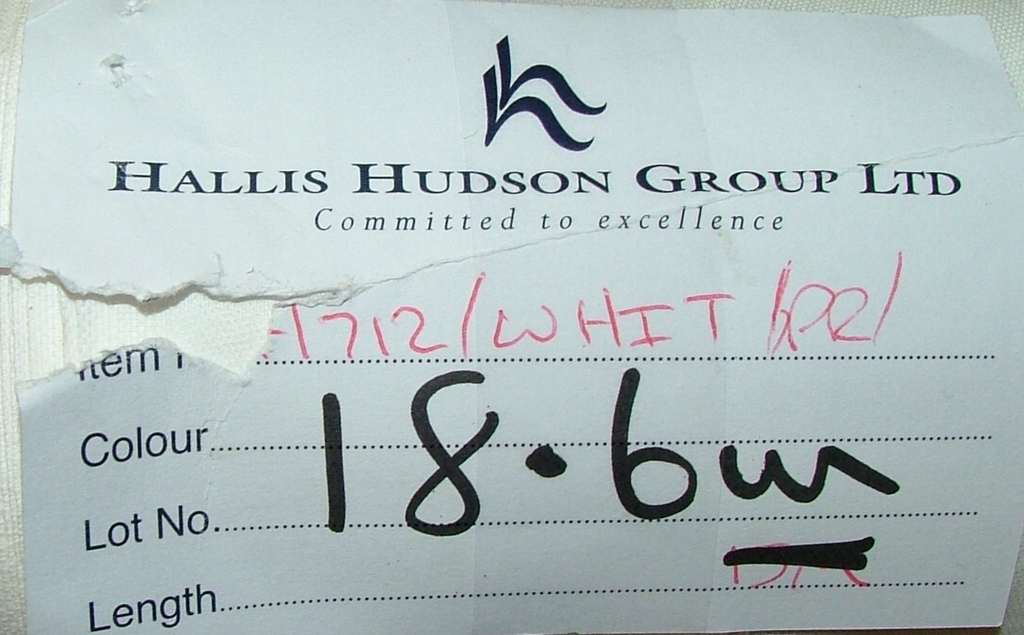 HALLIS HUDSON GROUP LTD
Committed to excellence
Item
1712/WHIT
Colour
18.6m
Lot No.
Length